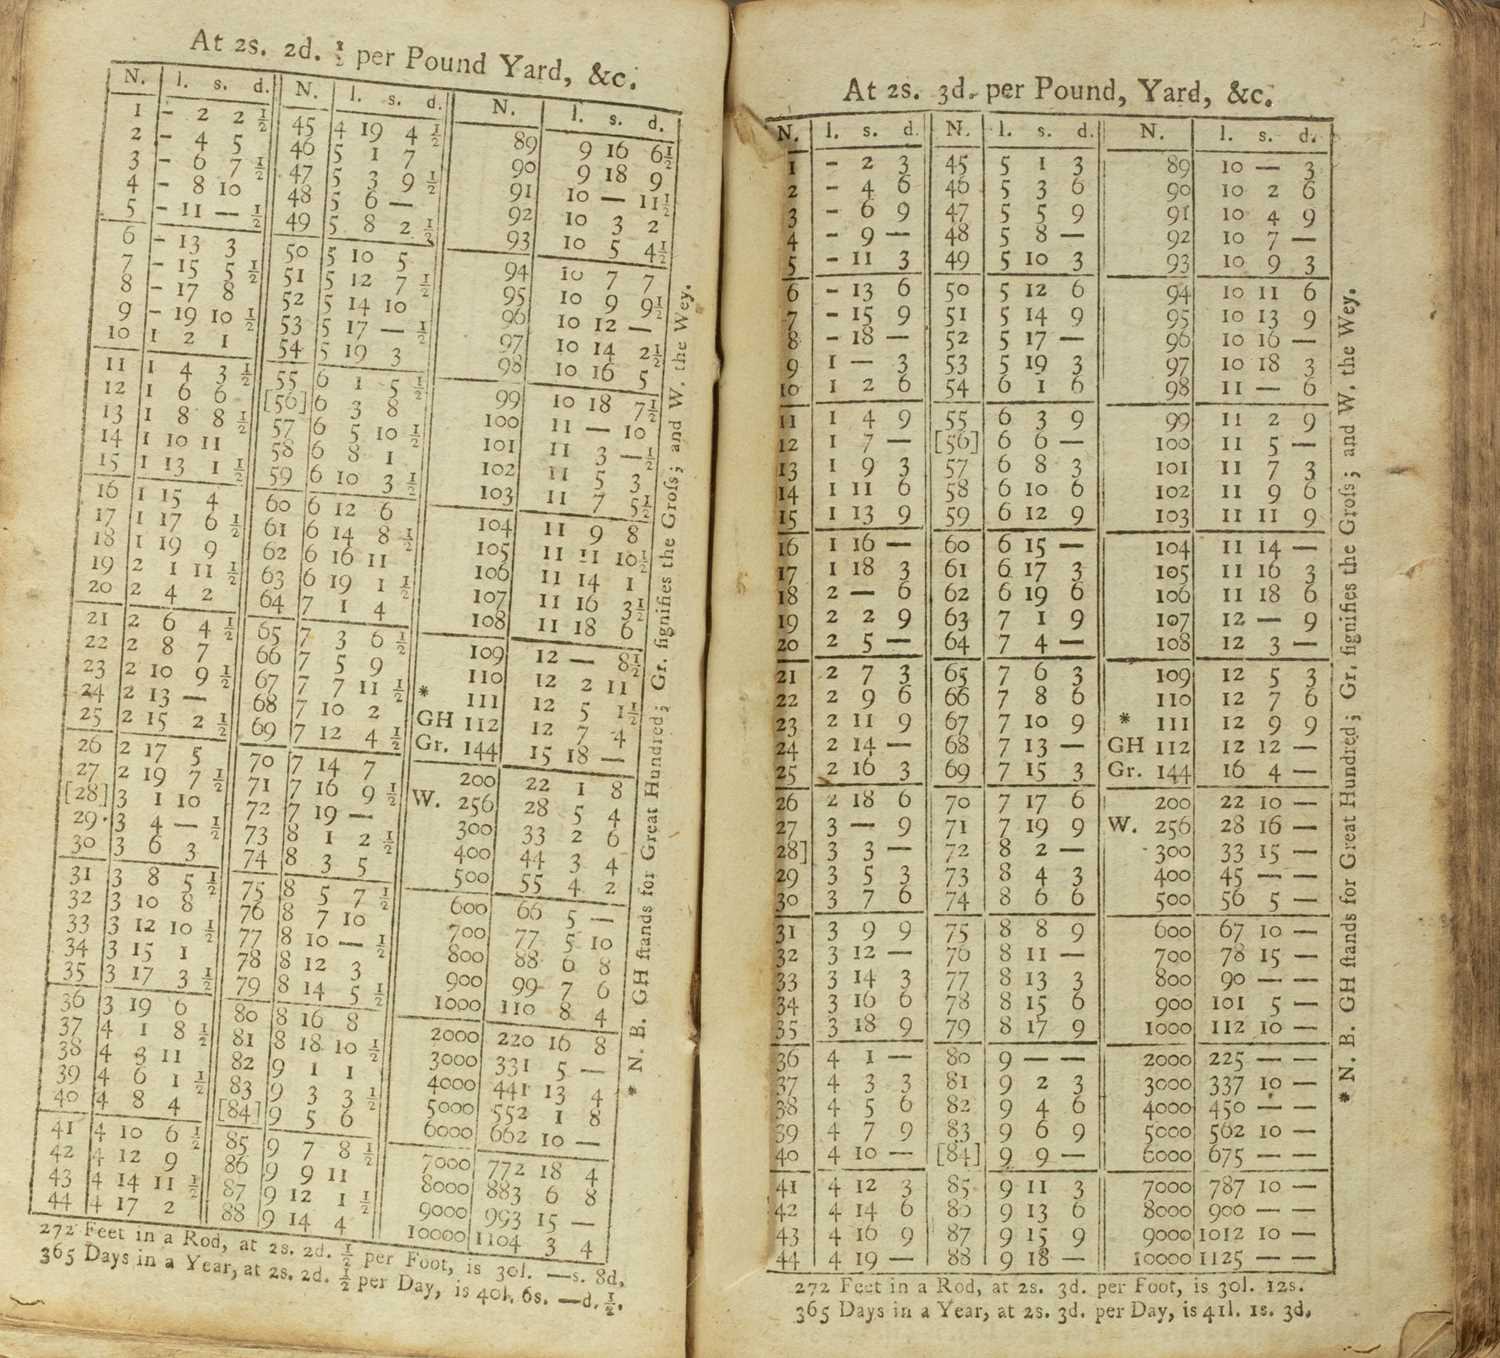 At 2s. 2d. ½ per Pound Yard, &c.
N. l. s. d. N. l. s. d. N. l. s. d.
1 - 2 2½ 45 4 19 4½ 89 9 16 6½
2 - 4 5 46 5 1 7 90 9 18 9
3 - 6 7½ 47 5 3 9½ 91 10 — 11½
4 - 8 10 48 5 6 — 92 10 3 2
5 - 11 —½ 49 5 8 2½ 93 10 5 4½
6 - 13 3 50 5 10 5 94 10 7 7
7 - 15 5½ 51 5 12 7½ 95 10 9 9½
8 - 17 8 52 5 14 10 96 10 12 —
9 - 19 10½ 53 5 17 —½ 97 10 14 2½
10 1 2 1 54 5 19 3 98 10 16 5
11 1 4 3½ 55 6 1 5½ 99 10 18 7½
12 1 6 6 [56] 6 3 8 100 11 — 10
13 1 8 8½ 57 6 5 10½ 101 11 3 —½
14 1 10 11 58 6 8 1 102 11 5 3
15 1 13 1½ 59 6 10 3½ 103 11 7 5½
16 1 15 4 60 6 12 6 104 11 9 8
17 1 17 6½ 61 6 14 8½ 105 11 11 10½
18 1 19 9 62 6 16 11 106 11 14 1
19 2 1 11½ 63 6 19 1½ 107 11 16 3½
20 2 4 2 64 7 1 4 108 11 18 6
21 2 6 4½ 65 7 3 6½ 109 12 — 8½
22 2 8 7 66 7 5 9 110 12 2 11
23 2 10 9½ 67 7 7 11½ * 111 12 5 1½
24 2 13 — 68 7 10 2 GH 112 12 7 4
25 2 15 2½ 69 7 12 4½ Gr. 144 15 18 —
26 2 17 5 70 7 14 7 200 22 1 8
27 2 19 7½ 71 7 16 9½ W. 256 28 5 4
[28] 3 1 10 72 7 19 — 300 33 2 6
29 3 4 —½ 73 8 1 2½ 400 44 3 4
30 3 6 3 74 8 3 5 500 55 4 2
31 3 8 5½ 75 8 5 7½ 600 66 5 —
32 3 10 8 76 8 7 10 700 77 5 10
33 3 12 10½ 77 8 10 —½ 800 88 6 8
34 3 15 1 78 8 12 3 900 99 7 6
35 3 17 3½ 79 8 14 5½ 1000 110 8 4
36 3 19 6 80 8 16 8 2000 220 16 8
37 4 1 8½ 81 8 18 10½ 3000 331 5 —
38 4 3 11 82 9 1 1 4000 441 13 4
39 4 6 1½ 83 9 3 3½ 5000 552 1 8
40 4 8 4 [84] 9 5 6 6000 662 10 —
41 4 10 6½ 85 9 7 8½ 7000 772 18 4
42 4 12 9 86 9 9 11 8000 883 6 8
43 4 14 11½ 87 9 12 1½ 9000 993 15 —
44 4 17 2 88 9 14 4 10000 1104 3 4
272 Feet in a Rod, at 2s. 2d. ½ per Foot, is 30l. —s. 8d,
365 Days in a Year, at 2s. 2d. ½ per Day, is 40l. 6s. —d. ½.
* N. B. GH ſtands for Great Hundred; Gr. ſignifies the Groſs; and W. the Wey.
At 2s. 3d. per Pound, Yard, &c.
N. l. s. d. N. l. s. d. N. l. s. d.
1 - 2 3 45 5 1 3 89 10 — 3
2 - 4 6 46 5 3 6 90 10 2 6
3 - 6 9 47 5 5 9 91 10 4 9
4 - 9 — 48 5 8 — 92 10 7 —
5 - 11 3 49 5 10 3 93 10 9 3
6 - 13 6 50 5 12 6 94 10 11 6
7 - 15 9 51 5 14 9 95 10 13 9
8 - 18 — 52 5 17 — 96 10 16 —
9 1 — 3 53 5 19 3 97 10 18 3
10 1 2 6 54 6 1 6 98 11 — 6
11 1 4 9 55 6 3 9 99 11 2 9
12 1 7 — [56] 6 6 — 100 11 5 —
13 1 9 3 57 6 8 3 101 11 7 3
14 1 11 6 58 6 10 6 102 11 9 6
15 1 13 9 59 6 12 9 103 11 11 9
16 1 16 — 60 6 15 — 104 11 14 —
17 1 18 3 61 6 17 3 105 11 16 3
18 2 — 6 62 6 19 6 106 11 18 6
19 2 2 9 63 7 1 9 107 12 — 9
20 2 5 — 64 7 4 — 108 12 3 —
21 2 7 3 65 7 6 3 109 12 5 3
22 2 9 6 66 7 8 6 110 12 7 6
23 2 11 9 67 7 10 9 * 111 12 9 9
24 2 14 — 68 7 13 — GH 112 12 12 —
25 2 16 3 69 7 15 3 Gr. 144 16 4 —
26 2 18 6 70 7 17 6 200 22 10 —
27 3 — 9 71 7 19 9 W. 256 28 16 —
28] 3 3 — 72 8 2 — 300 33 15 —
29 3 5 3 73 8 4 3 400 45 — —
30 3 7 6 74 8 6 6 500 56 5 —
31 3 9 9 75 8 8 9 600 67 10 —
32 3 12 — 76 8 11 — 700 78 15 —
33 3 14 3 77 8 13 3 800 90 — —
34 3 16 6 78 8 15 6 900 101 5 —
35 3 18 9 79 8 17 9 1000 112 10 —
36 4 1 — 80 9 — — 2000 225 — —
37 4 3 3 81 9 2 3 3000 337 10 —
38 4 5 6 82 9 4 6 4000 450 — —
39 4 7 9 83 9 6 9 5000 562 10 —
40 4 10 — [84] 9 9 — 6000 675 — —
41 4 12 3 85 9 11 3 7000 787 10 —
42 4 14 6 86 9 13 6 8000 900 — —
43 4 16 9 87 9 15 9 9000 1012 10 —
44 4 19 — 88 9 18 — 10000 1125 — —
272 Feet in a Rod, at 2s. 3d. per Foot, is 30l. 12s.
365 Days in a Year, at 2s. 3d. per Day, is 41l. 1s. 3d.
* N. B. GH ſtands for Great Hundred; Gr. ſignifies the Groſs; and W. the Wey.